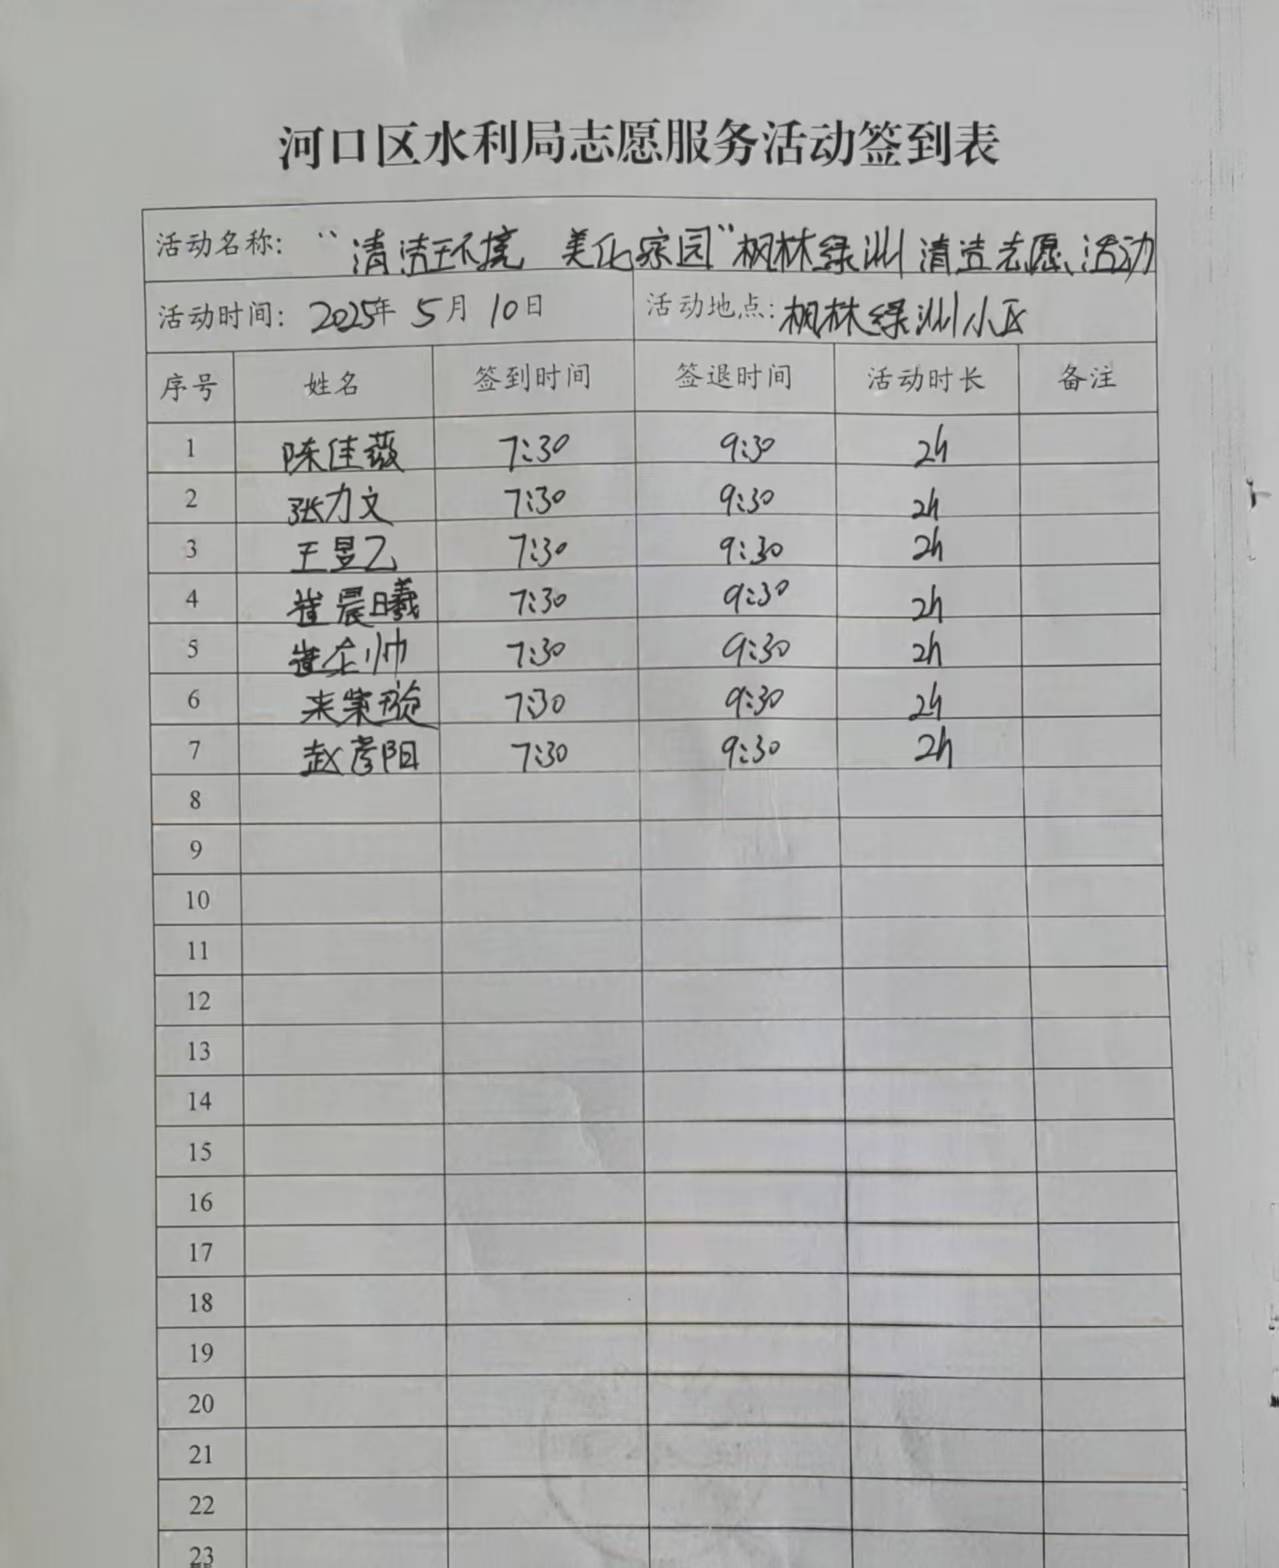 河口区水利局志愿服务活动签到表
活动名称: “清洁环境 美化家园”枫林绿洲清洁志愿活动
活动时间: 2025年 5月 10日 活动地点: 枫林绿洲小区
序号 姓名 签到时间 签退时间 活动时长 备注
1 陈佳薇 7:30 9:30 2h
2 张力文 7:30 9:30 2h
3 王昱乙 7:30 9:30 2h
4 崔晨曦 7:30 9:30 2h
5 崔帅 7:30 9:30 2h
6 7:30 9:30 2h
7 赵彦阳 7:30 9:30 2h
8
9
10
11
12
13
14
15
16
17
18
19
20
21
22
23